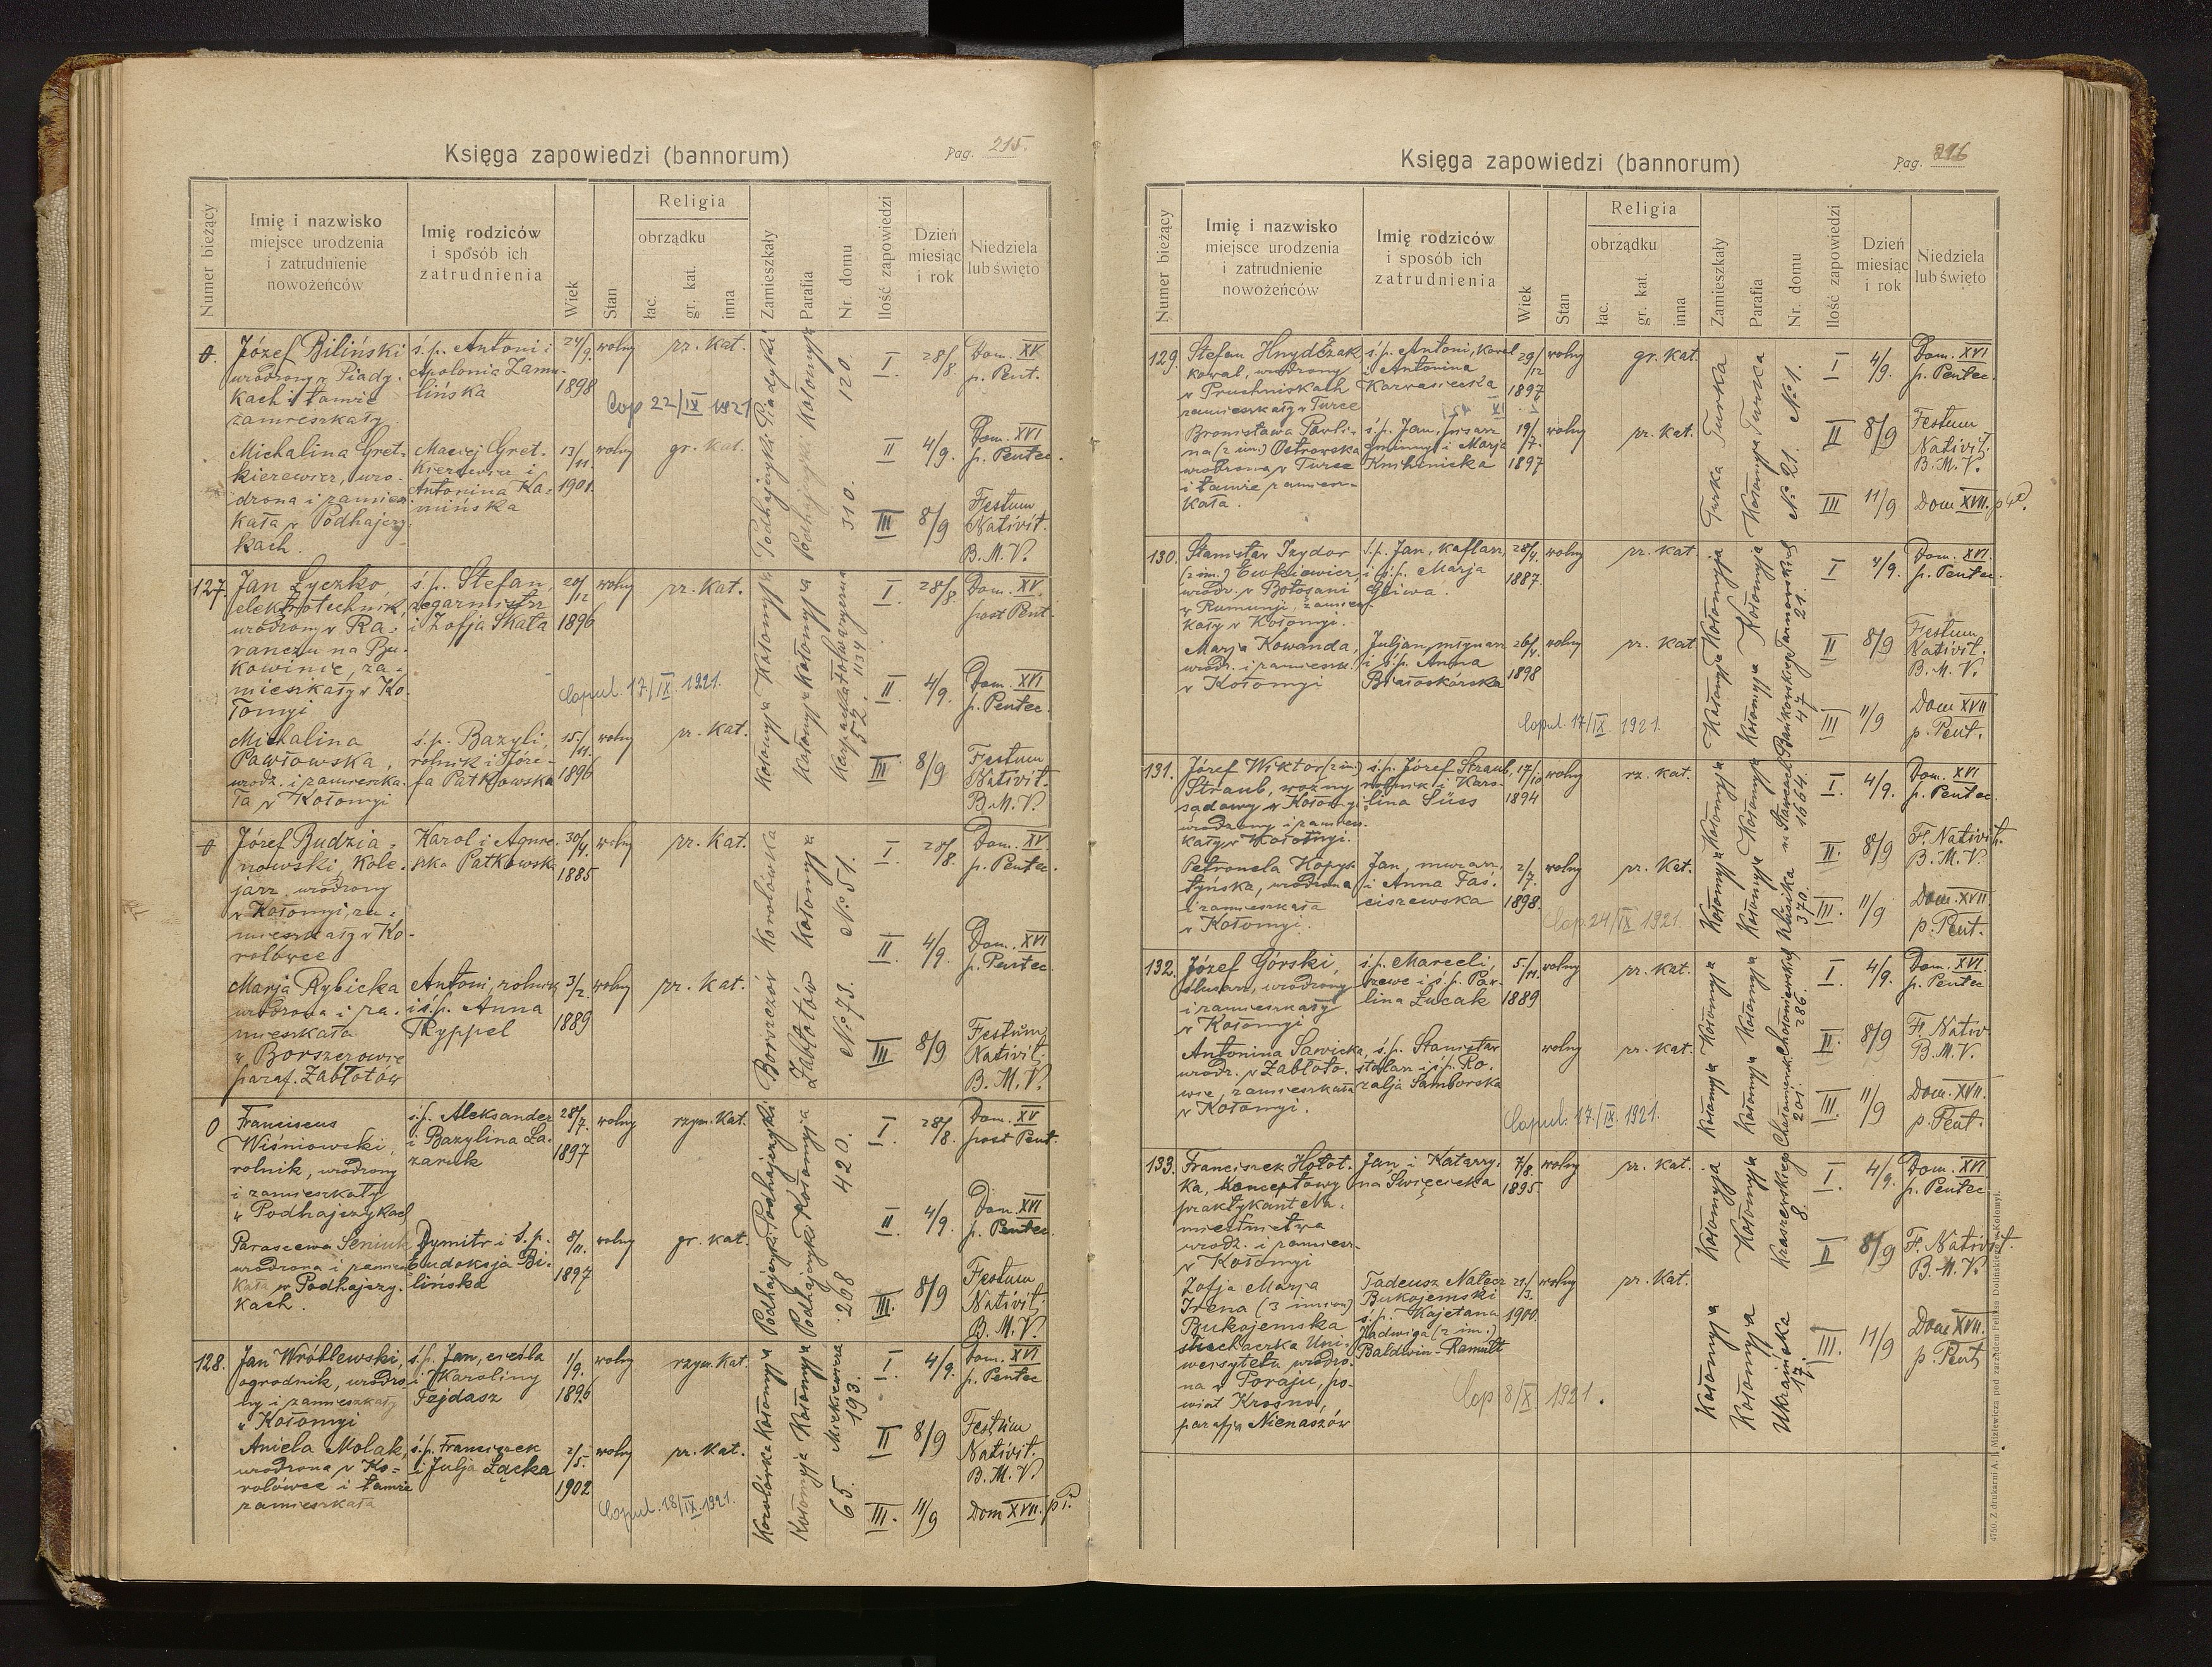 Księga zapowiedzi (bannorum)
Pag. 215.
Numer bieżący
Imię i nazwisko
miejsce urodzenia
i zatrudnienie
nowożeńców
Imię rodziców
i sposób ich
zatrudnienia
Wiek
Stan
Religia
obrządku
łac.
gr. kat.
inna
Zamieszkały
Parafia
Nr. domu
Ilość zapowiedzi
Dzień
miesiąc
i rok
Niedziela
lub święto
0.
Józef Biliński
urodzony w Piady-
kach i tamże
zamieszkały
ś.p. Antoni i
Apolonia Zamu-
lińska
24/9.
1898
wolny
rz. kat.
Cop 22/IX 1921
Piadyki
Kołomyja
120.
I 28/8. Dom. XV
p. Pent.
Michalina Gret-
kierewicz, uro-
dzona i zamiesz-
kała w Podhajczy-
kach.
Maciej Gret-
kierewicz i
Antonina Ka-
mińska
13/11.
1901.
wolny
gr. kat.
Podhajczyki
Podhajczyki
310.
II 4/9. Dom. XVI
p. Pentec.
III 8/9 Festum
Nativit.
B. M. V.
127.
Jan Łyczko,
elektrotechnik,
urodzony w Ra-
ranczu na Bu-
kowinie, za-
mieszkały w Ko-
łomyi
ś.p. Stefan,
zegarmistrz
i Zofja Skała
20/12
1896
wolny
rz. kat.
Copul. 17/IX 1921.
Kołomyja
Kołomyja
1134
I. 28/8. Dom. XV
post Pent.
II 4/9. Dom. XVI
p. Pentec.
Michalina
Pawłowska,
urodz. i zamieszka-
ła w Kołomyi
ś.p. Bazyli,
rolnik i Józe-
fa Patkowska
15/11.
1896
wolny
rz. kat.
Kołomyja
Kołomyja
52.
III 8/9 Festum
Nativit.
B. M. V.
0
Józef Budzia-
nowski, kole-
jarz, urodzony
w Kołomyi, za-
mieszkały w Ko-
rolówce
Karol i Agnie-
szka Patkowska
30/4.
1885
wolny
rz. kat.
Korolówka
Kołomyja
No 51.
I. 28/8. Dom. XV
p. Pentec.
II 4/9. Dom. XVI
p. Pentec.
Marja Rybicka
urodzona i za-
mieszkała
w Borszczowie
paraf. Zabłotów
Antoni, rolnik
i ś.p. Anna
Thyppel
3/2.
1889
wolny
rz. kat.
Borszczów
Zabłotów
No 73.
III 8/9 Festum
Nativit.
B. M. V.
0
Franciscus
Wiśniowski,
rolnik, urodzony
i zamieszkały
w Podhajczykach
ś.p. Aleksander
i Bazylina Ła-
zaruk
28/7.
1897
wolny
rzym. kat.
Podhajczyki
Kołomyja
420.
I. 28/8. Dom. XV
post Pent.
II 4/9. Dom XVI
p. Pentec.
Parascewa Seniuk
urodzona i zamiesz-
kała w Podhajczy-
kach.
Dymitr i ś.p.
Eudoksja Bi-
lińska
8/11.
1897
wolny
gr. kat.
Podhajczyki
Podhajczyki
268
III. 8/9 Festum
Nativit.
B. M. V.
128.
Jan Wróblewski,
ogrodnik, urodzo-
ny i zamieszkały
w Kołomyi
ś.p. Jan, cieśla
i Karoliny
Fejdasz
1/9.
1896
wolny
rzym. kat.
Kołomyja
Kołomyja
Mickiewicza
193.
I. 4/9. Dom. XVI
p. Pentec
II 8/9 Festum
Nativit.
B. M. V.
Aniela Molak,
urodzona w Ko-
rolówce i tamże
zamieszkała
ś.p. Franciszek
i Julja Łącka
2/5.
1902
wolny
rz. kat.
Copul. 18/IX. 1921.
Korolówka
Kołomyja
65.
III. 11/9 Dom XVII. p P.
Księga zapowiedzi (bannorum)
Pag. 216
Numer bieżący
Imię i nazwisko
miejsce urodzenia
i zatrudnienie
nowożeńców
Imię rodziców
i sposób ich
zatrudnienia
Wiek
Stan
Religia
obrządku
łac.
gr. kat.
inna
Zamieszkały
Parafia
Nr. domu
Ilość zapowiedzi
Dzień
miesiąc
i rok
Niedziela
lub święto
129.
Stefan Hnydczak,
kowal, urodzony
w Pruchniskach
zamieszkały w Turce
ś.p. Antoni, kowal
i Antonina
Karwasiecka
29/12
1897
wolny
gr. kat.
Turka
Turka
No 1.
I 4/9. Dom. XVI
p. Pentec.
Bronisława Pauli-
na (2 im.) Ostrowska
urodzona w Turce
i tamże zamiesz-
kała.
ś.p. Jan, pisarz
gminny i Marja
Knihinicka
19/7.
1897
wolny
rz. kat.
Turka
Kołomyja
No 21.
II 8/9 Festum
Nativit.
B. M. V.
III 11/9 Dom XVII. p P.
130.
Stanisław Izydor
(2 im.) Ewkiewicz,
urodz. w Botoszani
w Rumunji, zamiesz-
kały w Kołomyi.
ś.p. Jan, kaflarz,
i ś.p. Marja
Gliwa.
28/4.
1887.
wolny
rz. kat.
Kołomyja
Kołomyja
21.
I 4/9. Dom. XVI.
p. Pentec.
Marja Kowanda,
urodz. i zamieszk.
w Kołomyi
Juljan, młynarz
i ś.p. Anna
Białoskórska
26/4.
1898
wolny
rz. kat
Copul. 17/IX. 1921.
Kołomyja
Kołomyja
47
II 8/9 Festum
Nativit.
B. M. V.
III 11/9 Dom XVII
p. Pent.
131.
Józef Wiktor (2 im.)
Straub, woźny
sądowy w Kołomyi
urodzony i zamiesz-
kały w Kołomyi.
ś.p. Józef Straub,
rolnik i Karo-
lina Süss
17/10
1894
wolny
rz. kat.
Kołomyja
Kołomyja
1664.
I. 4/9. Dom. XVI
p. Pentec.
Petronela Kopys-
tyńska, urodzona
i zamieszkała
w Kołomyi.
Jan, murarz,
i Anna Faś-
ciszewska
2/7.
1898.
wolny
rz. kat.
Cop. 24/IX 1921.
Kołomyja
Kołomyja
Klasińska
370.
II. 8/9 F. Nativit.
B. M. V.
III. 11/9 Dom. XVII
p. Pent.
132.
Józef Górski,
ślusarz, urodzony
i zamieszkały
w Kołomyi
ś.p. Marceli,
szewc i ś.p. Pau-
lina Łucak
5/11.
1889
wolny
rz. kat.
Kołomyja
Kołomyja
286.
I. 4/9. Dom. XVI
p. Pentec
Antonina Sawicka,
urodz. w Zabłoto-
wie, zamieszkała
w Kołomyi.
ś.p. Stanisław
stolarz i ś.p. Ro-
zalja Samborska
wolny
rz. kat.
Copul. 17/IX. 1921.
Kołomyja
Kołomyja
201.
II. 8/9 F. Nativ.
B. M. V.
III. 11/9 Dom. XVII.
p. Pent.
133.
Franciszek Hołot-
ka, konceptowy
praktykant Na-
miestnictwa
urodz. i zamiesz-
w Kołomyi
Jan i Katarzy-
na Święcicka
7/8.
1895.
wolny
rz. kat.
Kołomyja
Kołomyja
Kraszewskiego
8.
I. 4/9. Dom. XVI
p. Pentec
II 8/9 F. Nativit.
B. M. V.
Zofja Marja
Irena (3 imion)
Bukojemska
słuchaczka Uni-
wersytetu urodzo-
na w Poraju, po-
wiat Krosno,
parafja Nienaszów
Tadeusz Nałęcz
Bukojemski
ś.p. Kajetana
Jadwiga (2 im.)
Baldwin-Ramułt
21/3.
1900.
wolny
rz. kat.
Cop 8/X 1921.
Kołomyja
Kołomyja
Ukraińska
17.
III. 11/9 Dom XVII.
p. Pent
4750. Z drukarni A. J. Miziewicza pod zarządem Feliksa Dolińskiego w Kołomyi.